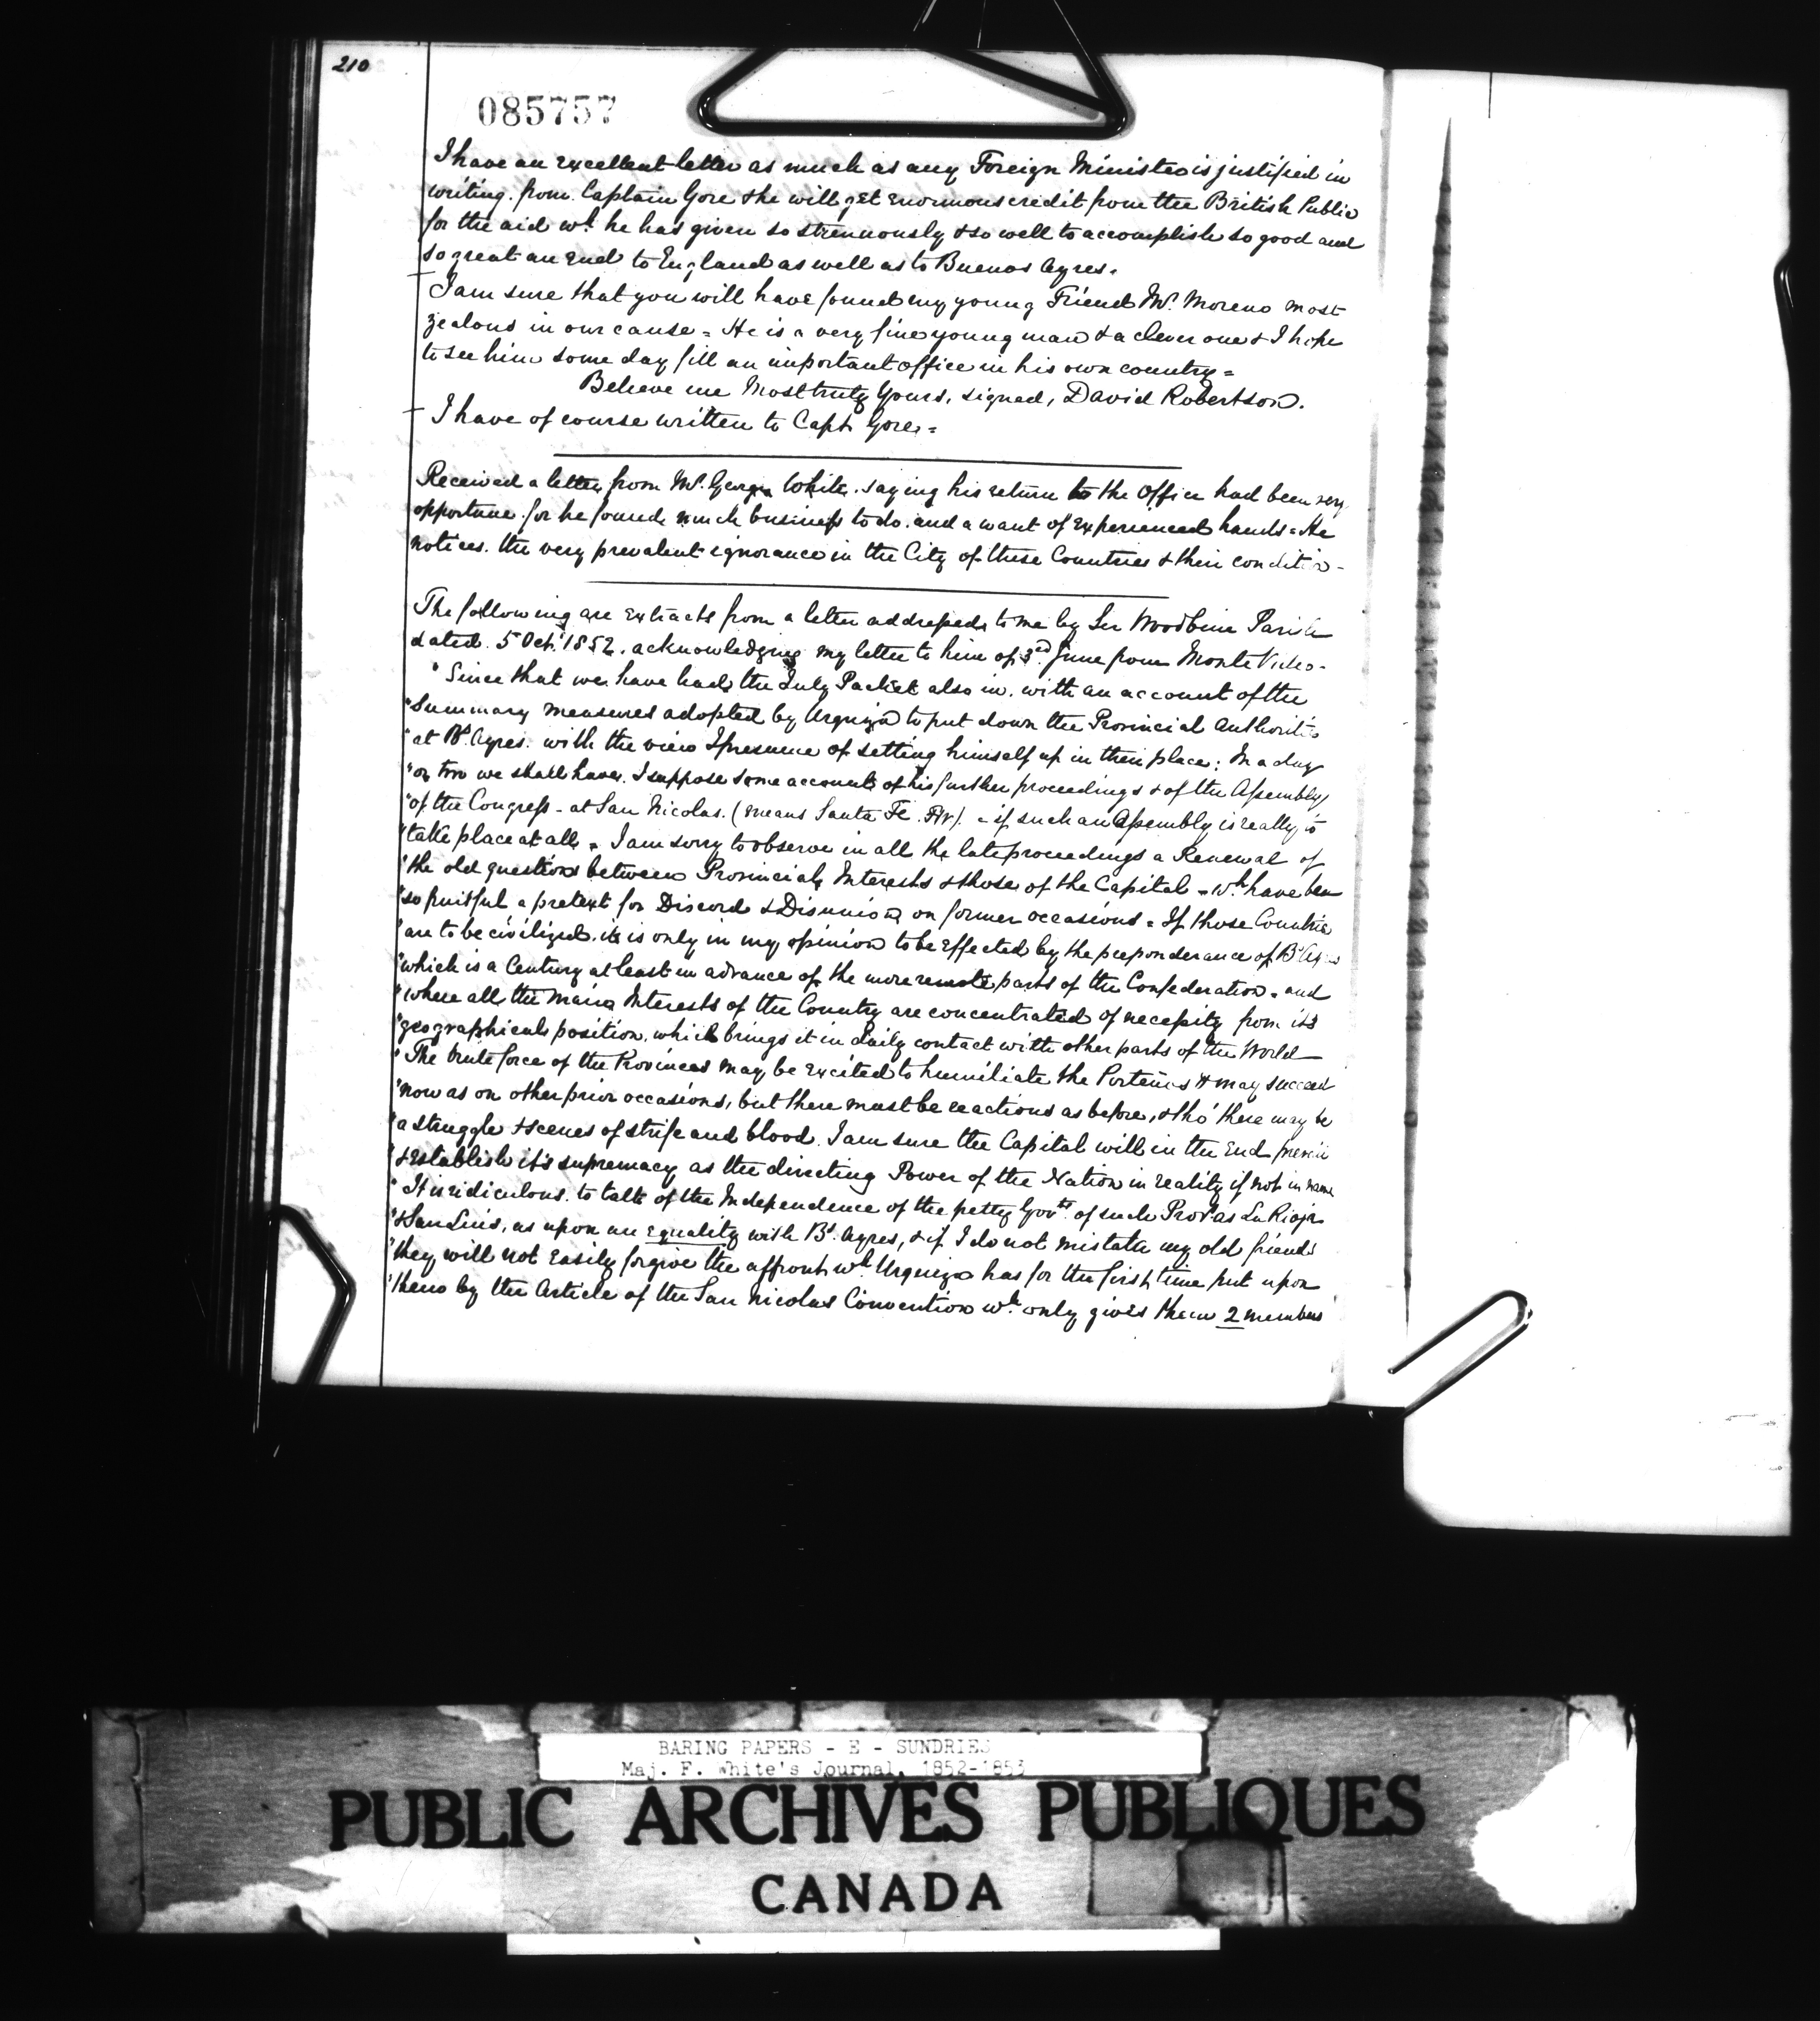 210
085757
I have an excellent letter as much as any Foreign Minister is justified in
writing. from Captain Gore & he will get enormous credit from the British Public
for the aid wh. he has given so strenuously & so well to accomplish so good and
so great an End to England as well as to Buenos Ayres.
I am sure that you will have found my young Friend Mr. Moreno most
zealous in our cause = He is a very fine young man & a clever one & I hope
to see him some day fill an important office in his own country =
Believe me Most truly Yours, signed, David Robertson.
I have of course written to Capt. Gore =
Received a letter from Mr. George White. saying his return to the Office had been very
opportune. for he found much business to do. and a want of Experienced hands = He
notices. the very prevalent ignorance in the City of these Countries & their condition -
The following are Extracts from a letter addressed to me by Sir Woodbine Parish
dated. 5 Oct. 1852. acknowledging my letter to him of 3rd. June from Monte Video -
" Since that we have had the July Packet also in. with an account of the
" Summary measures adopted by Urquiza to put down the Provincial Authorities
" at Bs. Ayres. with the view I presume of setting himself up in their place; In a day
" or two we shall have. I suppose some accounts of his further proceedings & of the Assembly
" of the Congress - at San Nicolas. (means Santa Fé. FW). = if such an Assembly is really to
" take place at all = I am sorry to observe in all the late proceedings a Renewal of
" the old question between Provincial Interests & those of the Capital = wh. have been
" so fruitful a pretext for Discord & Disunion on former occasions = If those Countries
" are to be civilized. it is only in my opinion to be effected by the preponderance of Bs. Ayres
" which is a Century at least in advance of the more remote parts of the Confederation = and
" where all the main Interests of the Country are concentrated of necessity from its
" geographical position. which brings it in daily contact with other parts of the World
" The brute force of the Provinces may be excited to humiliate the Porteños & may succeed
" now as on other prior occasions, but there must be reactions as before, & tho' there may be
" a struggle & scenes of strife and blood. I am sure the Capital will in the End prevail
" & Establish it's supremacy as the directing Power of the Nation in reality if not in name
" It is ridiculous. to talk of the Independence of the petty Govts. of such Provs as La Rioja
" & San Luis, as upon an equality with Bs. Ayres, & if I do not mistake my old friends
" they will not Easily forgive the affront wh. Urquiza has for the first time put upon
" them by the Article of the San Nicolas Convention wh. only gives them 2 members
BARING PAPERS - E - SUNDRIES
Maj. F. White's Journal, 1852-1853
PUBLIC ARCHIVES PUBLIQUES
CANADA